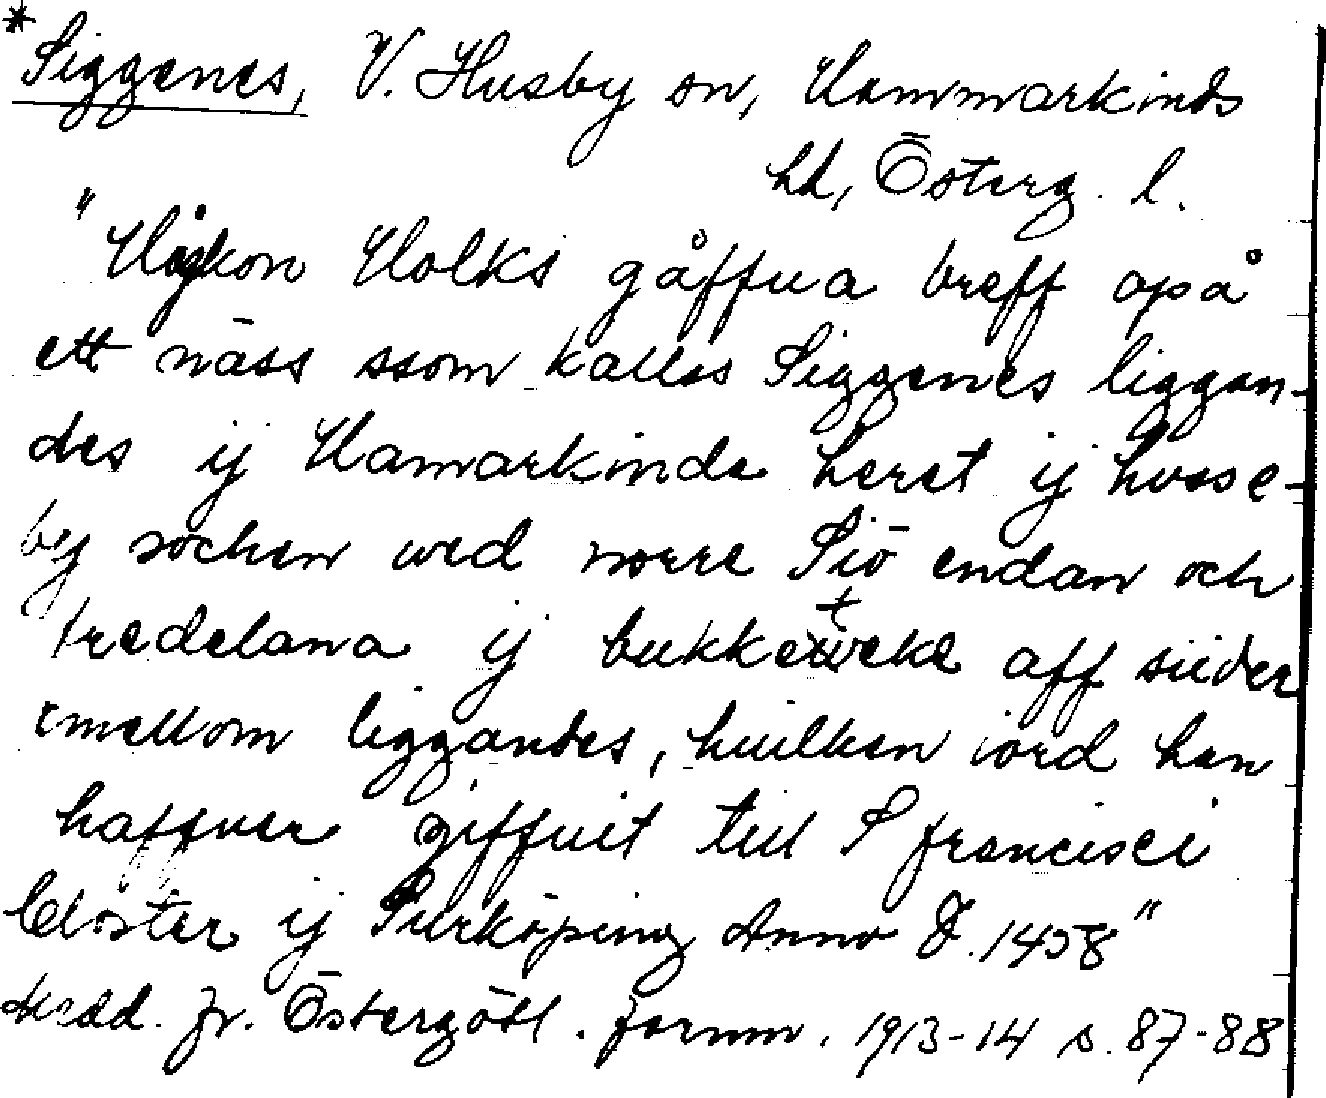 * Siggenes, V. Husby sn, Hammarkinds
hd, Österg. l.
"Håkon Holks gåffua breff opå
ett näss ssom kallas Siggenes liggan-
des ij Hamarkinda heret ij husse-
by sochen wed norre Siö endan och
tredelana ij bukketweke aff siider
emellom liggandes, huilken iord han
haffuer giffuit till S francisci
Closter ij Surköping Anno D. 1458"
Medd. fr. Östergötl. fornm. 1913-14 s. 87-88